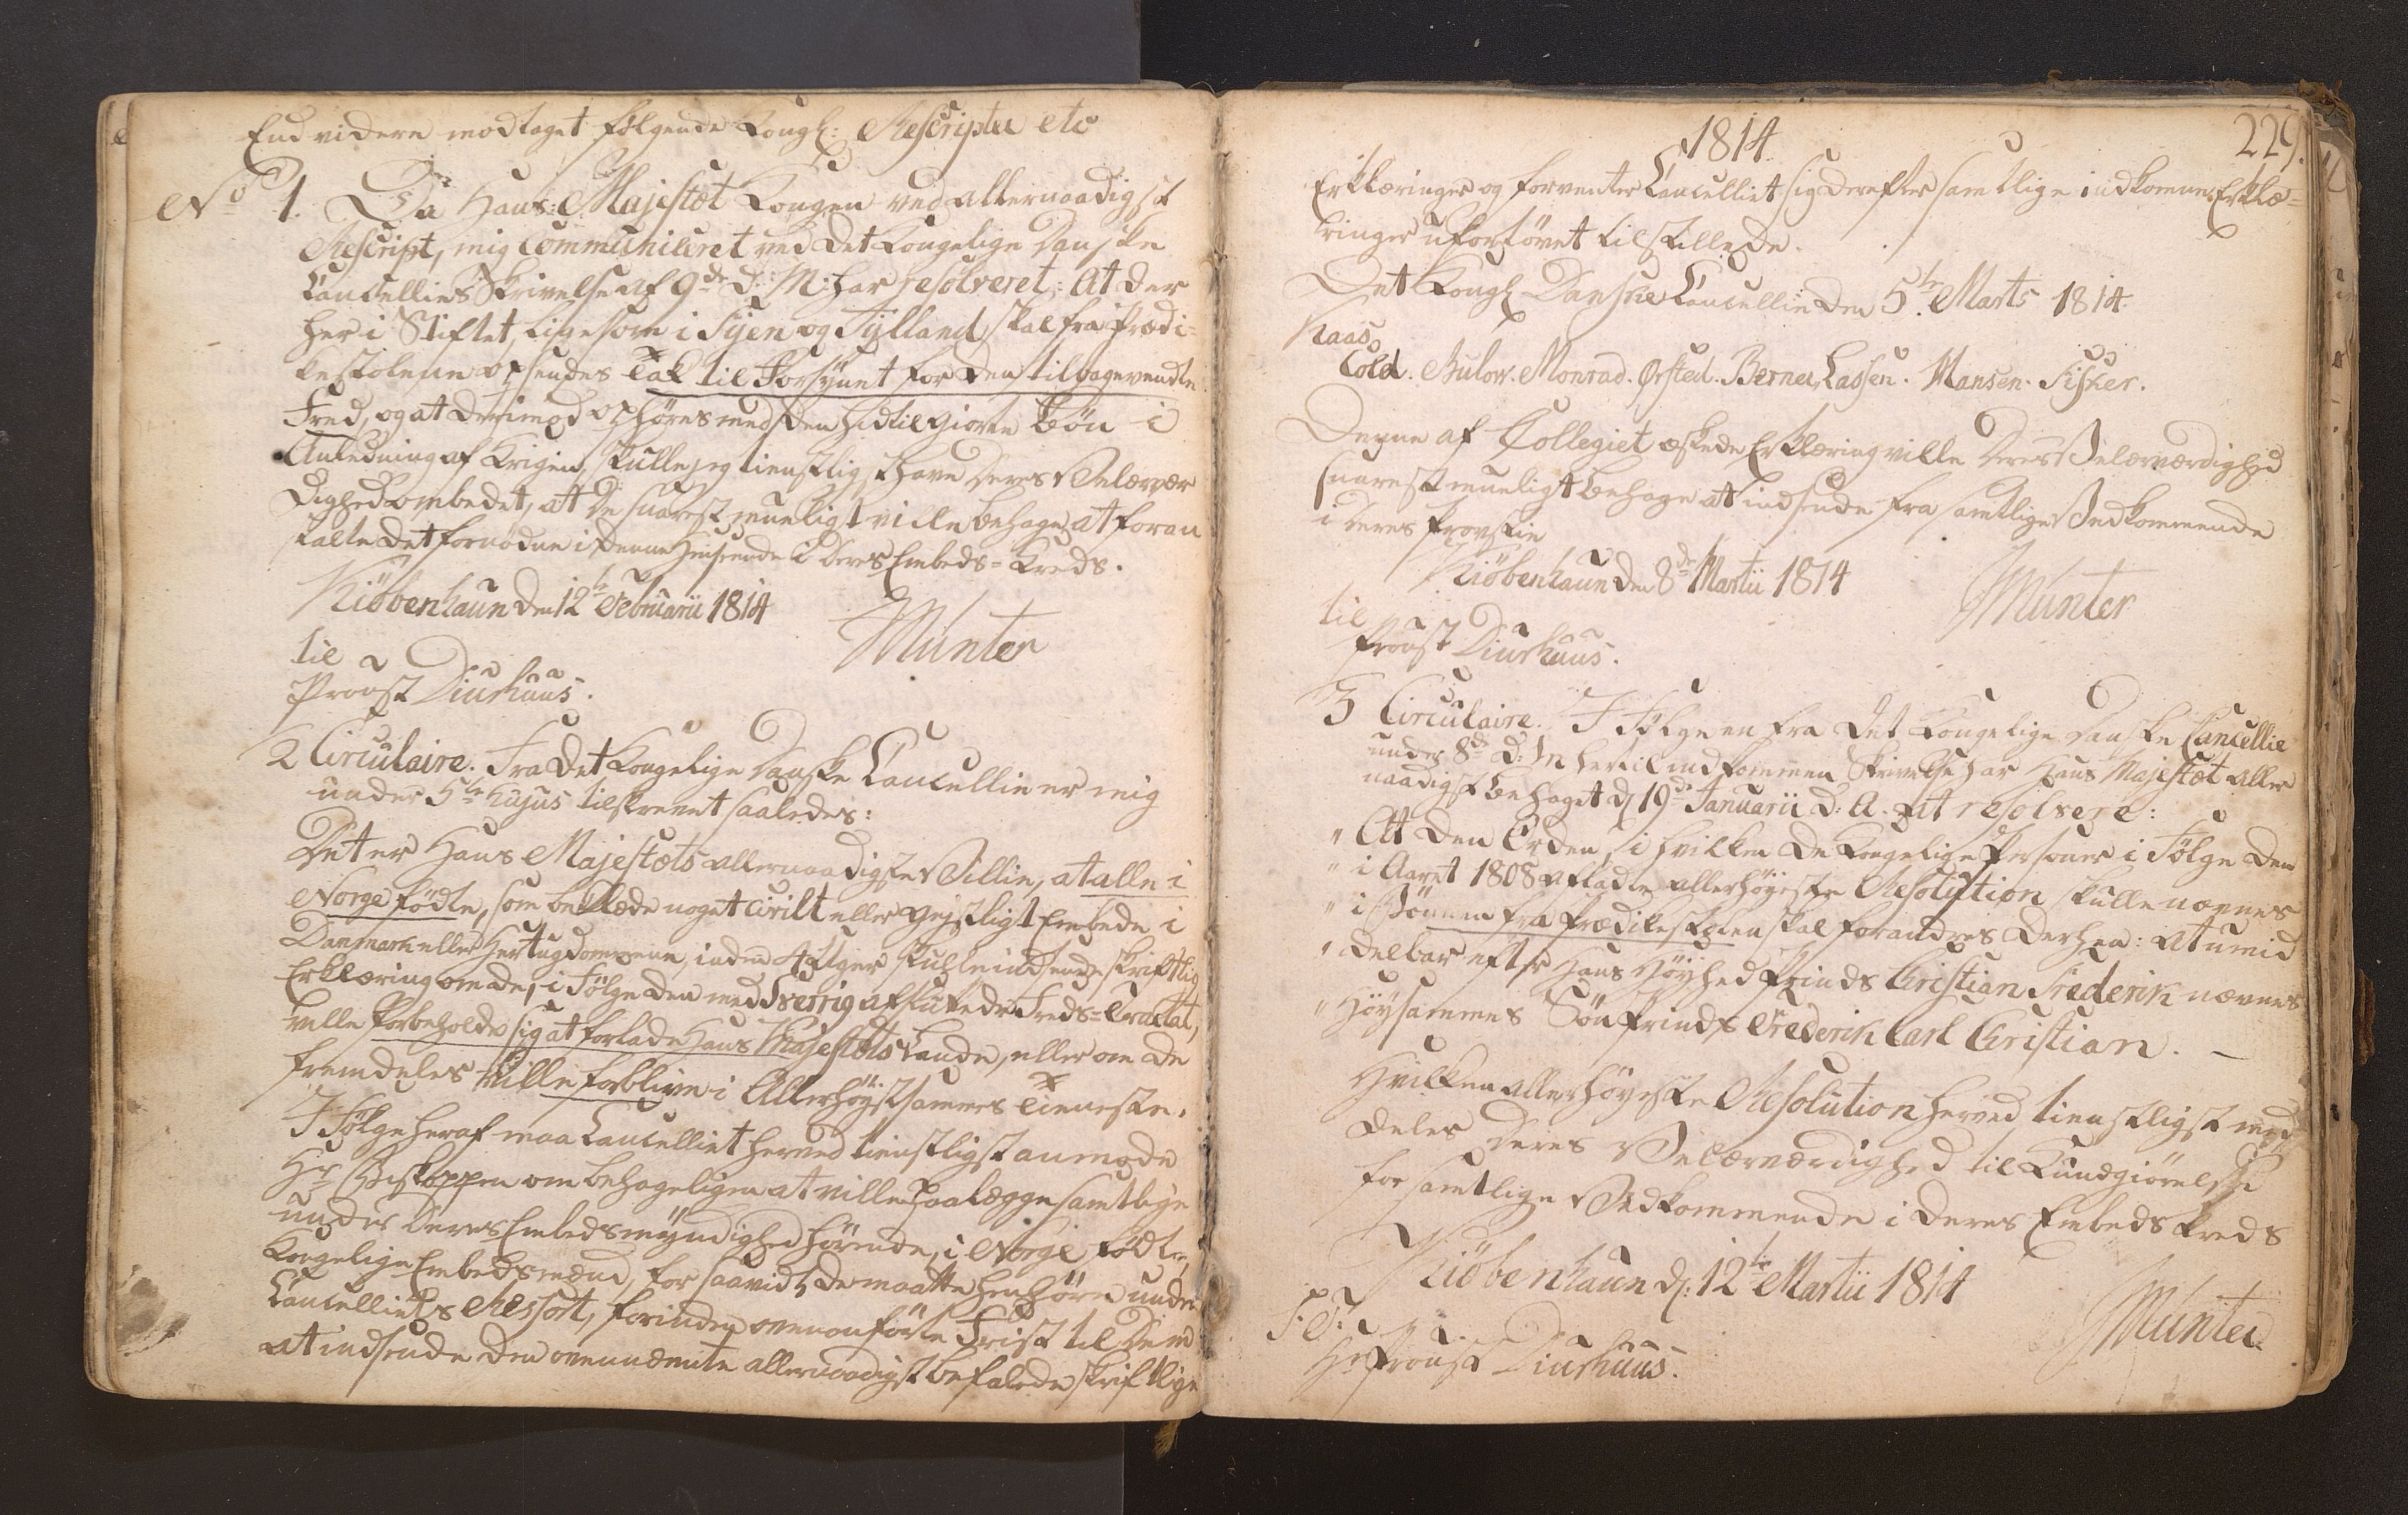 End videre modtaget følgende Kongl: Rescripter etc
No 1. Da Hans Majestæt Kongen ved allernaadigst
Rescript, mig Communiceret ved det Kongelige Danske
Cancellies Skrivelse af 9de d: M: har resolveret: At der
her i Stiftet, ligesom i Fyen og Jylland, skal fra Prædi-
kestolene opsendes Tak til Forsynet for den tilbagevendte
Fred, og at derimod ophøres med den hidtil giorte Bøn i
Anledning af Krigen, skulle jeg tienstligst have Deres Velærvær
dighed ombedet, at De snarest mueligt ville behage at foran
stalte det fornødne i denne Henseende i Deres Embeds-Kreds.
Kiøbenhaun den 12te Februarii 1814
Münter
til
Provst Diurhuus.
2 Circulaire. Fra det Kongelige Danske Cancellie er mig
under 5te hujus tilskrevet saaledes:
Det er Hans Majestæts allernaadigste Villie, at alle i
Norge fødte, som beklæde noget civilt eller geistligt Embede i
Danmark eller Hertugdømmene, inden 4 Uger skulle indsende skriftlig
Erklæring om de, i Følge den med Sverrig afsluttede Freds-Tractat,
ville forbeholde sig at forlade Hans Majestæts Lande, eller om de
fremdeles ville forblive i Allerhøistsammes Tieneste.
I Følge heraf maa Cancelliet herved tienstligst anmode
Hr Biskoppen om behageligen at ville paalægge samtlige
under Deres Embedsmyndighed hørende, i Norge fødte,
Kongelige Embedsmænd, for saavidt de maatte henhøre under
Cancelliets Ressort, forinden ovenanførte Frist til Dem
at indsende den ovennævnte allernaadigst befalede skriftlige
1814.
229.
Erklæringer og forventer Cancelliet sig derefter samtlige indkomne Erklæ-
ringer ufortøvet tilstillede.
Det Kongl Danske Cancellie den 5te Marts 1814
Kaas
Cold. Bulow. Monrad. Ørsted. Berner. Lassen. Hansen. Fisker.
Denne af Collegiet æskede Erklæring ville Deres Velærværdighed
snarest mueligt behage at indsende fra samtlige Vedkommende
i Deres Provstie
Kiöbenhaun den 8de Martii 1814
Münter
til
Provst Diurhuus.
3 Circulaire. I Følge en fra det Kongelige Danske Cancellie
under 8de d: M hertil indkommen Skrivelse har Hans Majestæt aller
naadigst behaget d 19de Januarii d: A. at resolvere:
" At den Orden, i hvilken de Kongelige Personer i Følge den
" i Aaret 1808 afladte allerhøieste Resolution skulle nævnes
" i Bønnen fra Prædikestolen skal forandres derhen: at umid
" delbar efter Hans Høyhed Prinds Christian Frederik nævnes
" Høysammes Søn Prinds Frederik Carl Christian. —
Hvilken allerhøyeste Resolution herved tienstligst med
deles Deres Velærværdighed til Kundgiørelse
for samtlige Vedkommende i Deres Embedskreds
Kiöbenhaun d: 12te Martii 1814
Münter
S: T:
Hr Provst Diurhuus.